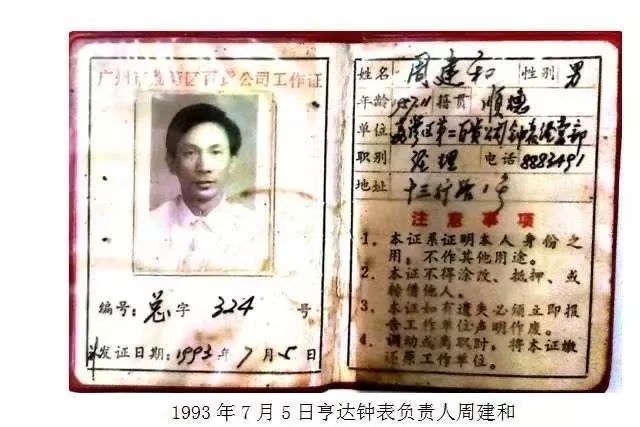 广州市荔湾区百货公司工作证
编号:总字 324 号
发证日期:1993年7月5日
姓名 周建和 性别 男
年龄 1957.11 籍贯 顺德
单位 荔湾区第二百货公司钟表经营部
职别 经理 电话 8883491
地址 十三行路1号
注意事项
1、本证系证明本人身份之
用,不作其他用途。
2、本证不得涂改、抵押、或
转借他人。
3、本证如有遗失必须立即报
告工作单位声明作废。
4、调动或离职时,将本证缴
还原工作单位。
1993 年 7 月 5 日亨达钟表负责人周建和